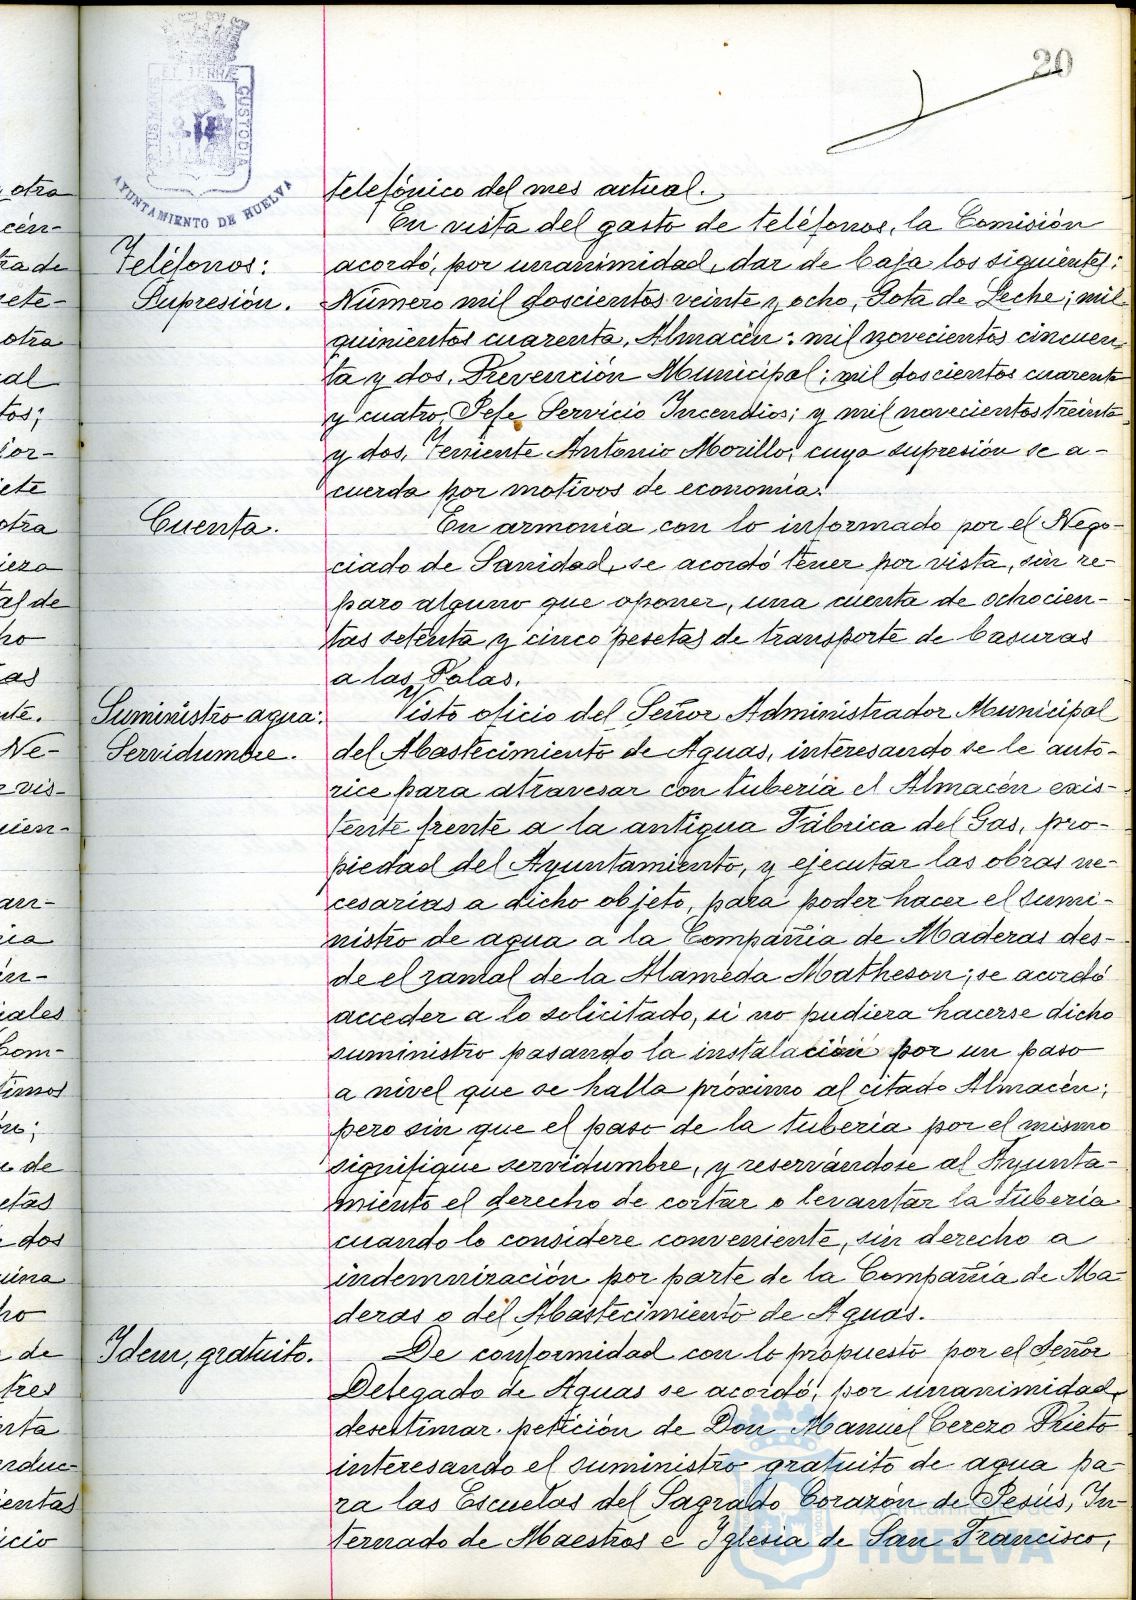 20
PORTUS MARIS ET TERRAE CUSTODIA
AYUNTAMIENTO DE HUELVA
telefónico del mes actual.
En vista del gasto de teléfonos, la Comisión
Teléfonos:
acordó, por unanimidad, dar de baja los siguientes:
Supresión.
Número mil doscientos veinte y ocho, Gota de Leche; mil
quinientos cuarenta, Almacén; mil novecientos cincuen-
ta y dos, Prevención Municipal; mil doscientos cuarenta
y cuatro, Jefe Servicio Incendios; y mil novecientos treinta
y dos, Teniente Antonio Morillo; cuya supresión se a-
cuerda por motivos de economía.
Cuenta.
En armonía con lo informado por el Nego-
ciado de Sanidad, se acordó tener por vista, sin re-
paro alguno que oponer, una cuenta de ochocien-
tas setenta y cinco pesetas de transporte de basuras
a las Polas.
Suministro agua:
Visto oficio del Señor Administrador Municipal
Servidumbre.
del Abastecimiento de Aguas, interesando se le auto-
rice para atravesar con tubería el Almacén exis-
tente frente a la antigua Fábrica del Gas, pro-
piedad del Ayuntamiento, y ejecutar las obras ne-
cesarias a dicho objeto, para poder hacer el sumi-
nistro de agua a la Compañía de Maderas des-
de el ramal de la Alameda Matheson; se acordó
acceder a lo solicitado, si no pudiera hacerse dicho
suministro pasando la instalación por un paso
a nivel que se halla próximo al citado Almacén;
pero sin que el paso de la tubería por el mismo
signifique servidumbre, y reservándose al Ayunta-
miento el derecho de cortar o levantar la tubería
cuando lo considere conveniente, sin derecho a
indemnización por parte de la Compañía de Ma-
deras o del Abastecimiento de Aguas.
Idem, gratuito.
De conformidad con lo propuesto por el Señor
Delegado de Aguas se acordó, por unanimidad,
desestimar petición de Don Manuel Cerezo Prieto
interesando el suministro gratuito de agua pa-
ra las Escuelas del Sagrado Corazón de Jesús, In-
ternado de Maestros e Iglesia de San Francisco,
Ayuntamiento de
HUELVA